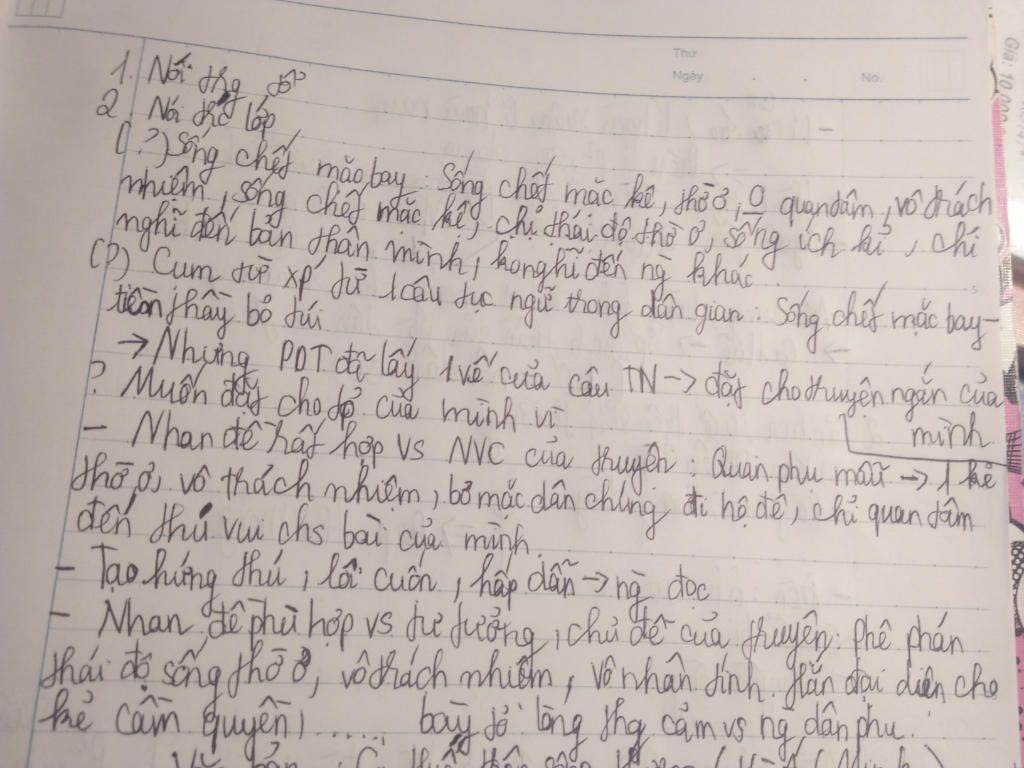 Thứ
Ngày . . No.
Giá: 10.000
1. Nói thg
2. Nói lớp
(?) Sống chết mặc bay: Sống chết mặc kệ, thờ ơ, O quan tâm, vô trách
nhiệm, sống chết mặc kệ, chỉ thái độ thờ ơ, sống ích kỉ, chỉ
nghĩ đến bản thân mình, k nghĩ đến ng khác.
(?) Cụm từ xp' từ 1 câu tục ngữ trong dân gian: Sống chết mặc bay-
tiền thầy bỏ túi
→ Nhưng PDT đã lấy 1 vế của câu TN → đặt cho truyện ngắn của
mình.
? Muốn đặt cho của mình vì
- Nhan đề rất hợp vs NVC của truyện: Quan phụ mẫu → 1 kẻ
thờ ơ, vô trách nhiệm, bỏ mặc dân chúng đi hộ đê, chỉ quan tâm
đến thú vui chs bài của mình.
- Tạo hứng thú, lôi cuốn, hấp dẫn → ng đọc
- Nhan đề phù hợp vs tư tưởng, chủ đề của truyện: phê phán
thái độ sống thờ ơ, vô trách nhiệm, vô nhân tính. Hắn đại diện cho
kẻ cầm quyền, ...... bày tỏ lòng thg cảm vs ng dân phu.